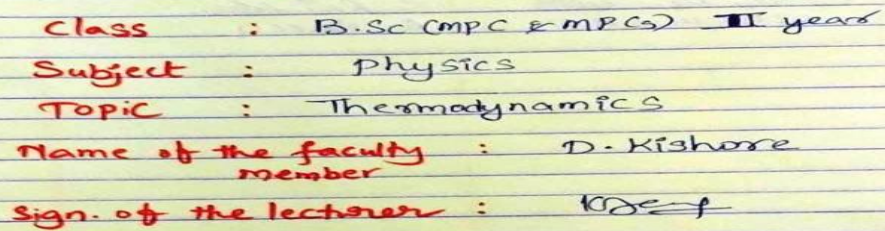 Class : B.Sc (MPC & MPCs) II year
Subject : Physics
Topic : Thermodynamics
Name of the faculty member : D. Kishore
Sign. of the lecturer :